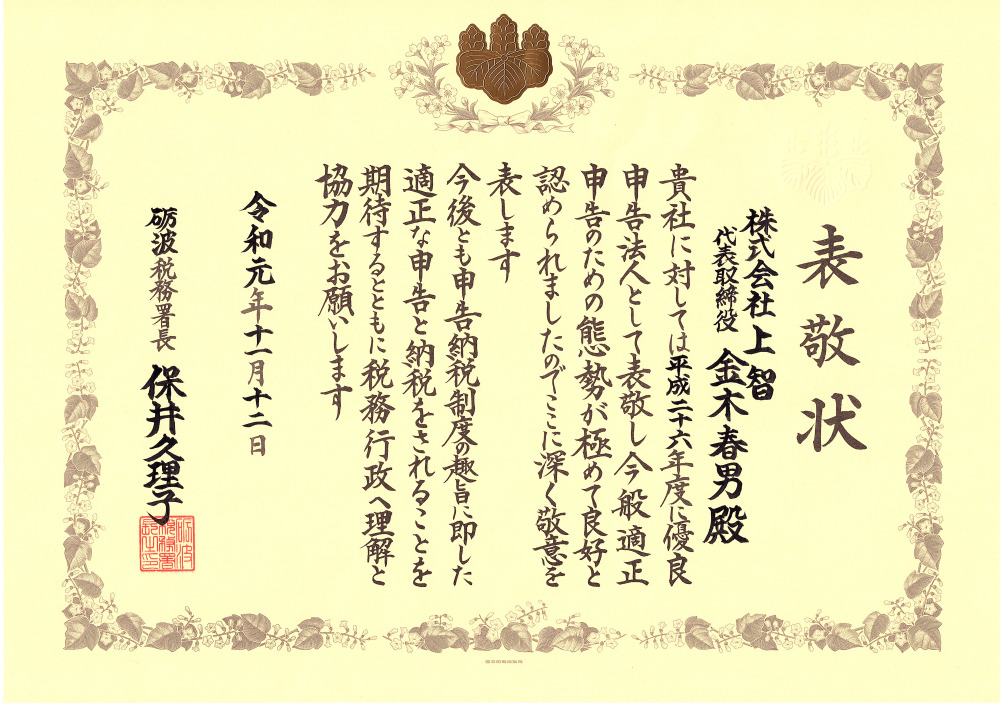 表敬状
株式会社上智
代表取締役 金木春男殿
貴社に対しては平成二十六年度に優良
申告法人として表敬し今般適正
申告のための態勢が極めて良好と
認められましたのでここに深く敬意を
表します
今後とも申告納税制度の趣旨に即した
適正な申告と納税をされることを
期待するとともに税務行政へ理解と
協力をお願いします
令和元年十一月十二日
砺波税務署長 保井久理子
砺波税務署長之印